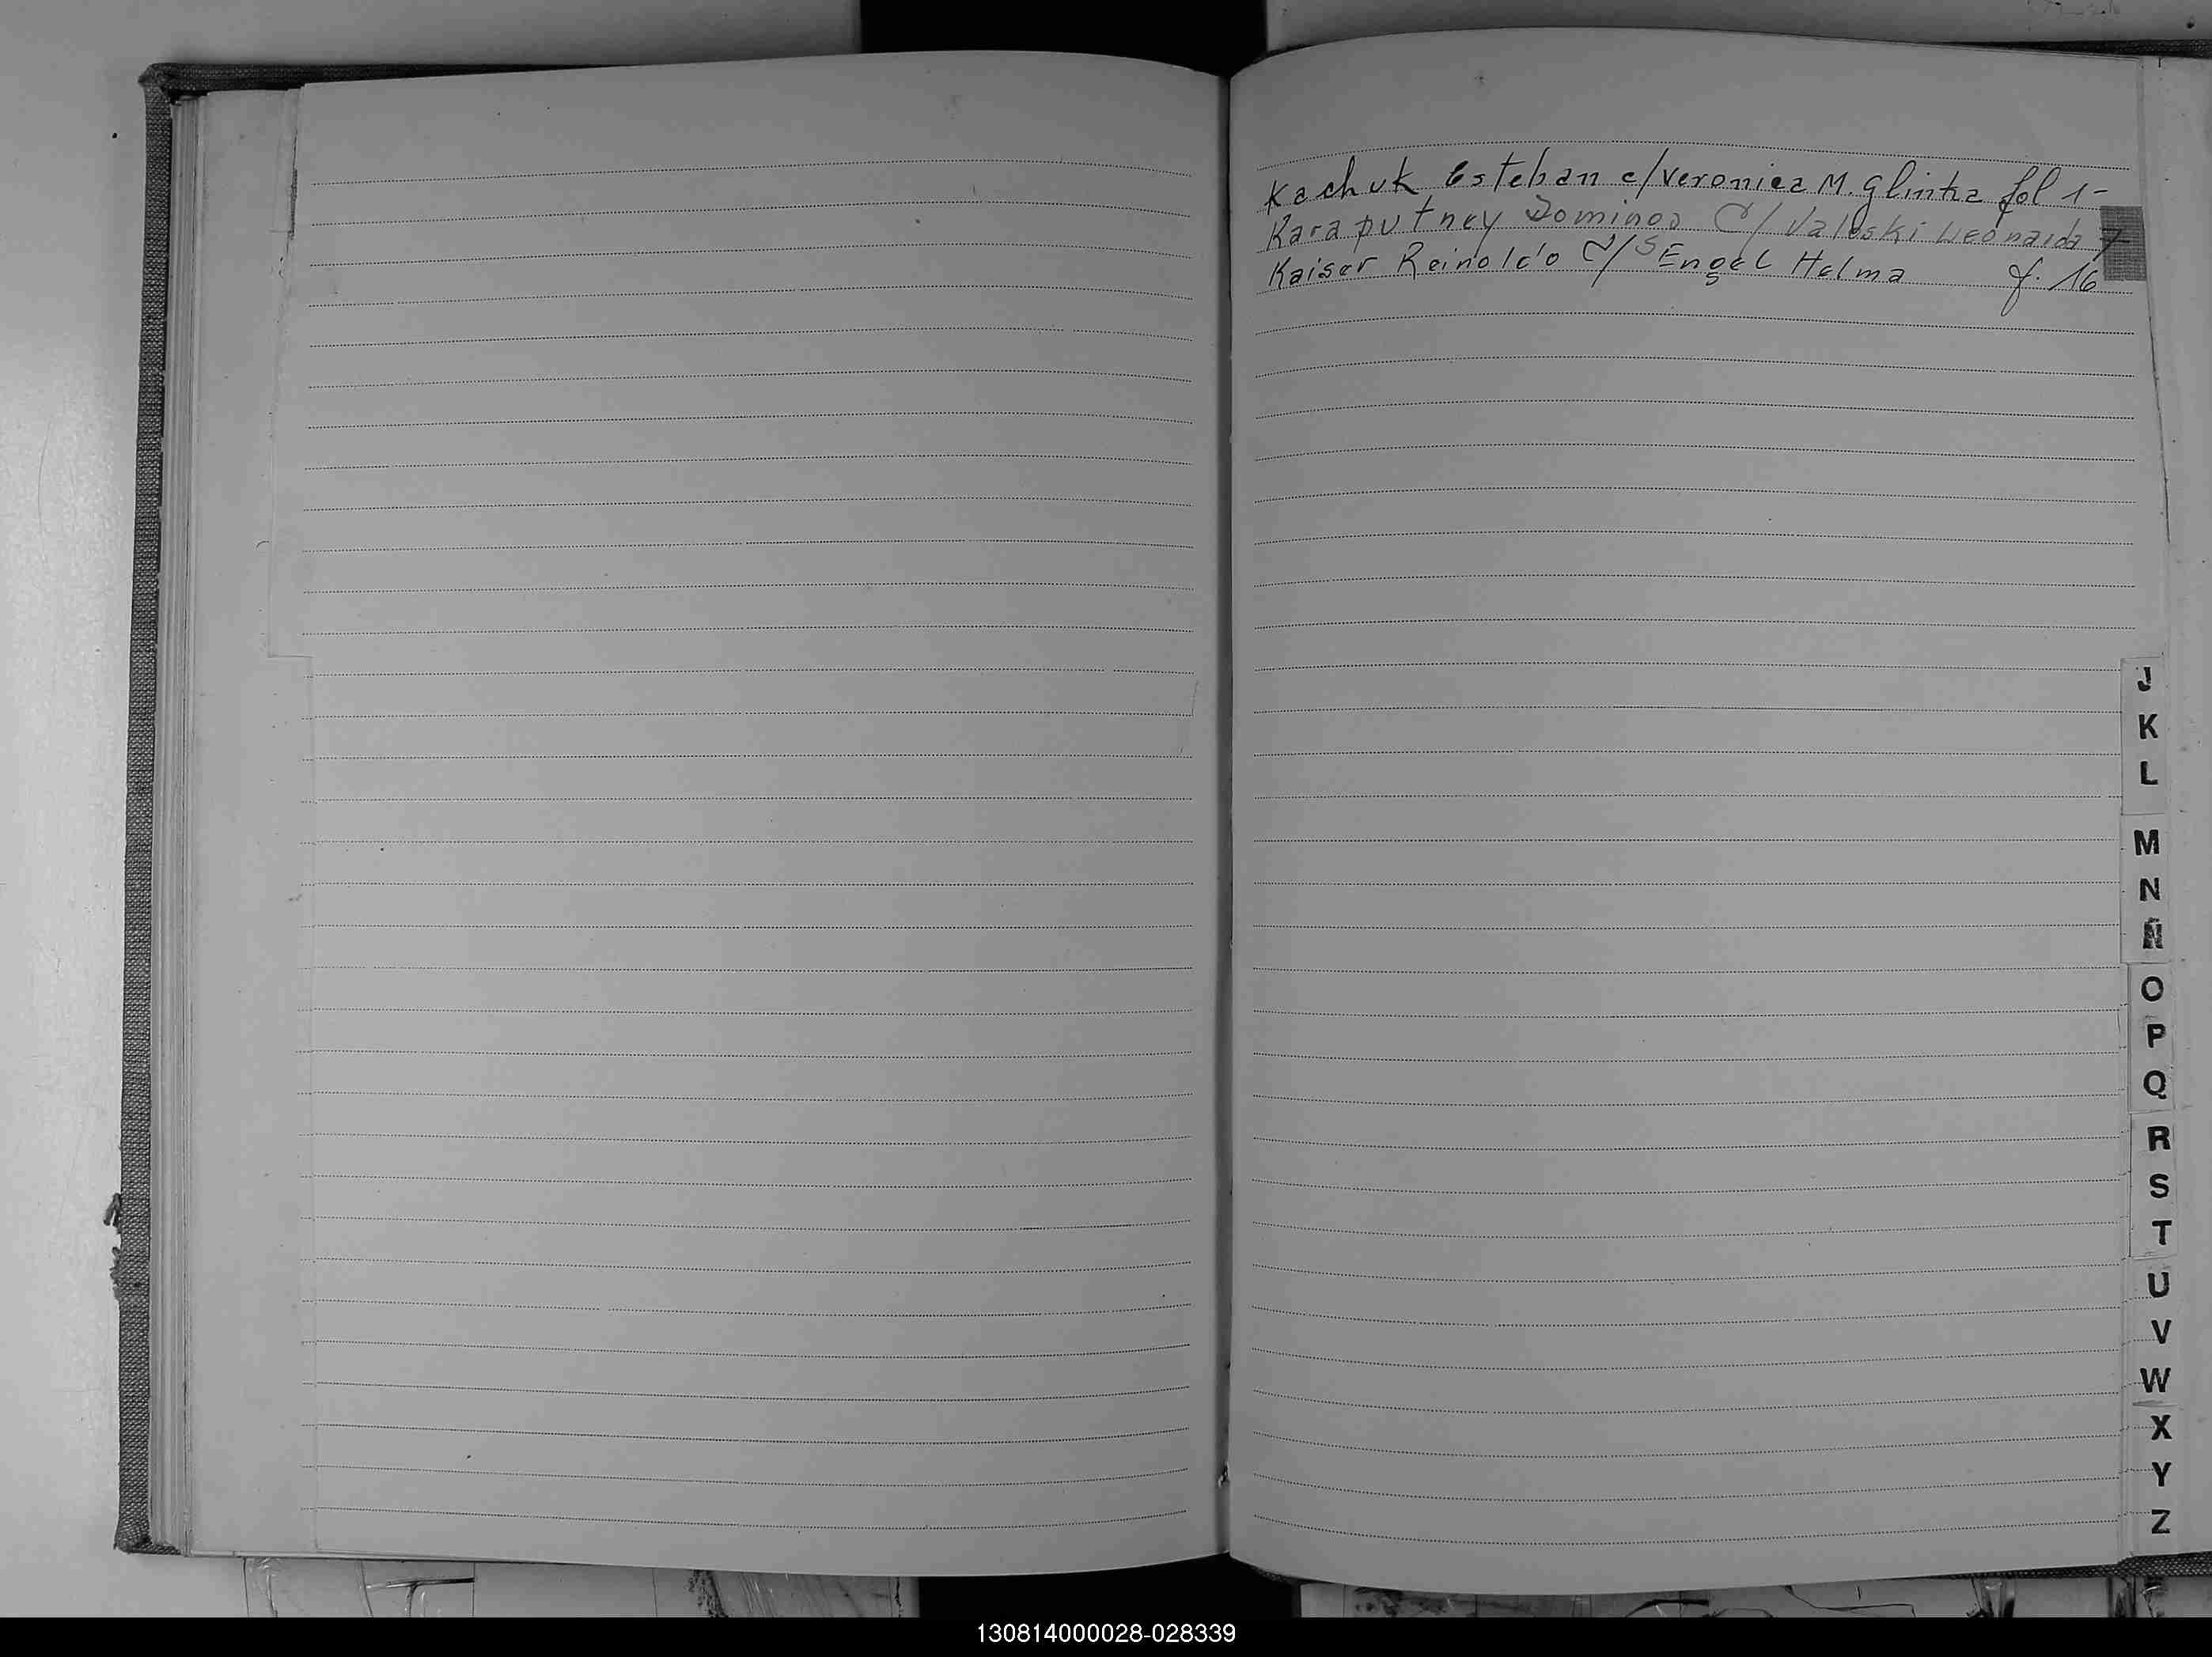 Kachuk Esteban c/Veronica M. Glinka fol 1-
Karaputney Domingo C/ Valeski Leonarda 7
Kaiser Reinoldo C/ Engel Helma f. 16
J
K
L
M
N
Ñ
O
P
Q
R
S
T
U
V
W
X
Y
Z
130814000028-028339